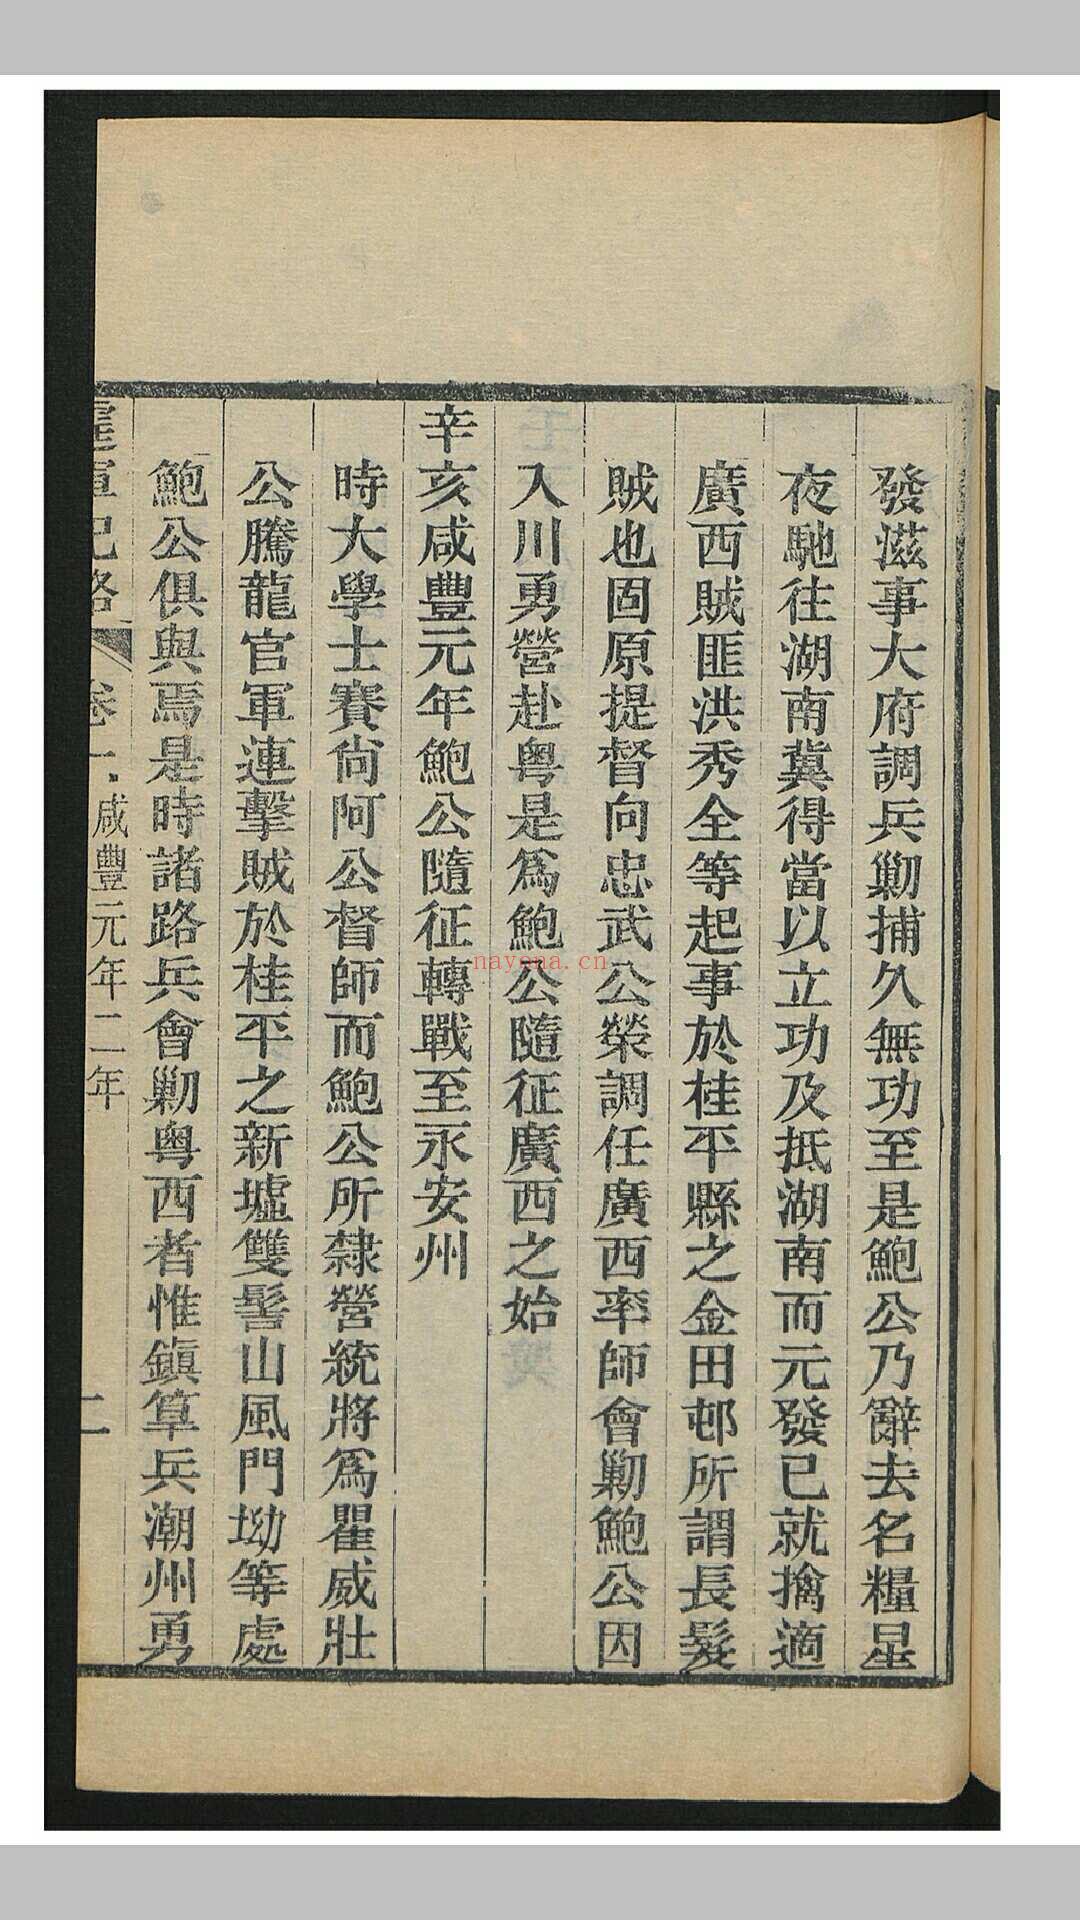 發滋事大府調兵勦捕久無功至是鮑公乃辭去名糧星
夜馳往湖南冀得當以立功及抵湖南而元發已就擒適
廣西賊匪洪秀全等起事於桂平縣之金田邨所謂長髮
賊也固原提督向忠武公榮調任廣西率師會勦鮑公因
入川勇營赴粵是爲鮑公隨征廣西之始
辛亥咸豐元年鮑公隨征轉戰至永安州
時大學士賽尙阿公督師而鮑公所隸營統將爲瞿威壯
公騰龍官軍連擊賊於桂平之新墟雙髻山風門坳等處
鮑公俱與焉是時諸路兵會勦粵西者惟鎭筸兵潮州勇
霆軍紀略 卷一 咸豐元年二年 二
nayona.cn